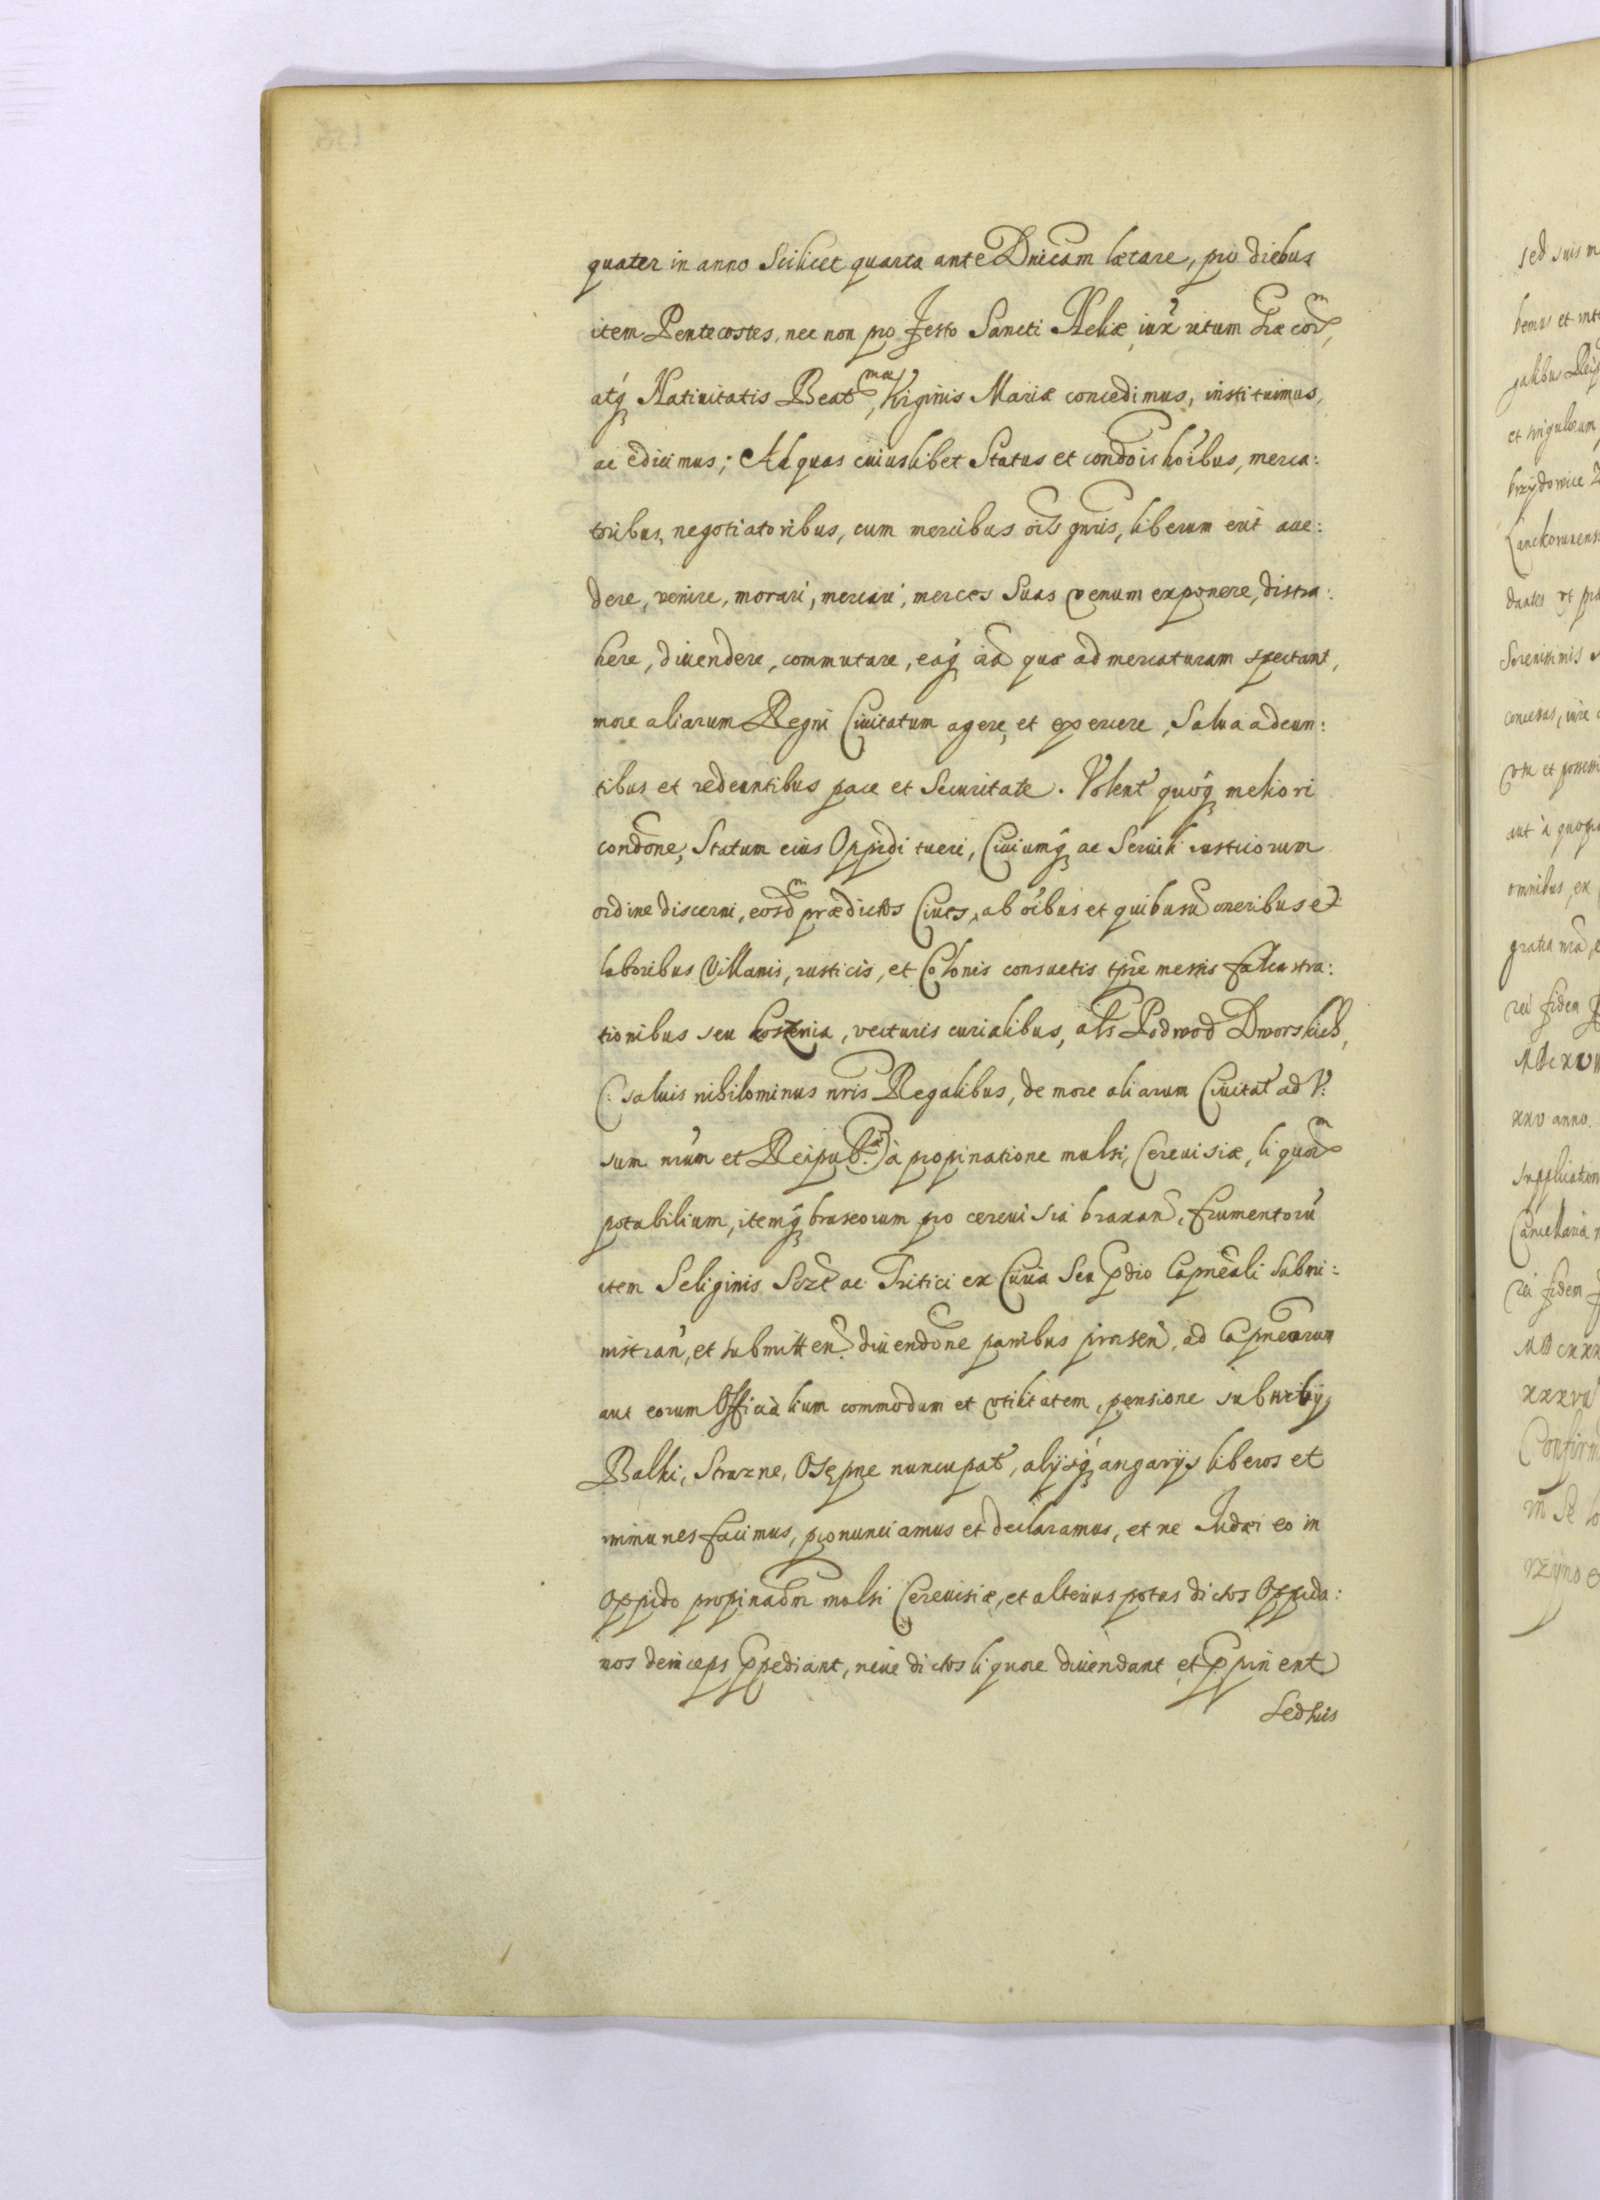 quater in anno Scilicet quarta ante Dnicam lætare, pro diebus
item Pentecostes, nec non pro Festo Sancti Heliæ iux ritum Græcor,
atq Natiuitatis Beatmæ, Virginis Mariæ concedimus, instituimus,
ac edicimus; Ad quas cuiuslibet Status et condois hoibus, merca:
toribus, negotiatoribus, cum mercibus ois gnris, liberum erit acce:
dere, venire, morari, mercari, merces Suas venum exponere, distra:
here, diuendere, commutare, eaq oia quæ ad mercaturam spectant,
more aliarum Regni Ciuitatum agere, et exercere, Salua adeun:
tibus et redeuntibus pace et Securitate. Volent quoq meliori
condone, Statum eius Oppidi tueri, Ciuiumq ac Seruili rusticorum
ordine discerni, eosdm prædictos Ciues, ab oibus et quibusu oneribus et
laboribus Villanis, rusticis, et Colonis consuetis tpre messis falcastra:
tionibus seu koszenia, vecturis curialibus, als Podwod Dworskich,
(: saluis nihilominus nris Regalibus, de more aliarum Ciuitat ad V:
sum nrum et Reipub:cæ) à propinatione mulsi, Cereuisiæ, liquorm
potabilium, itemq braseorum pro cereuisia braxan, frumentoru
item Seliginis Sort ac Tritici ex Curia Seu pdio Capneali Submi:
nistran, et submitten: diuendone panibus pinsen, ad Capnearum
aut eorum Officialium commodum et vtilitatem, pensione suburbij,
Balki, Strozne, Osępne nuncupat, alijsq angarijs liberos et
immunes facimus, pronunciamus et declaramus, et ne Iudæi eo in
Oppido propinaom mulsi Cereuisiæ, et alterius potus dictos Oppida:
nos deinceps ppediant, neue dictos liquore diuendant et ppinent
Sed suis